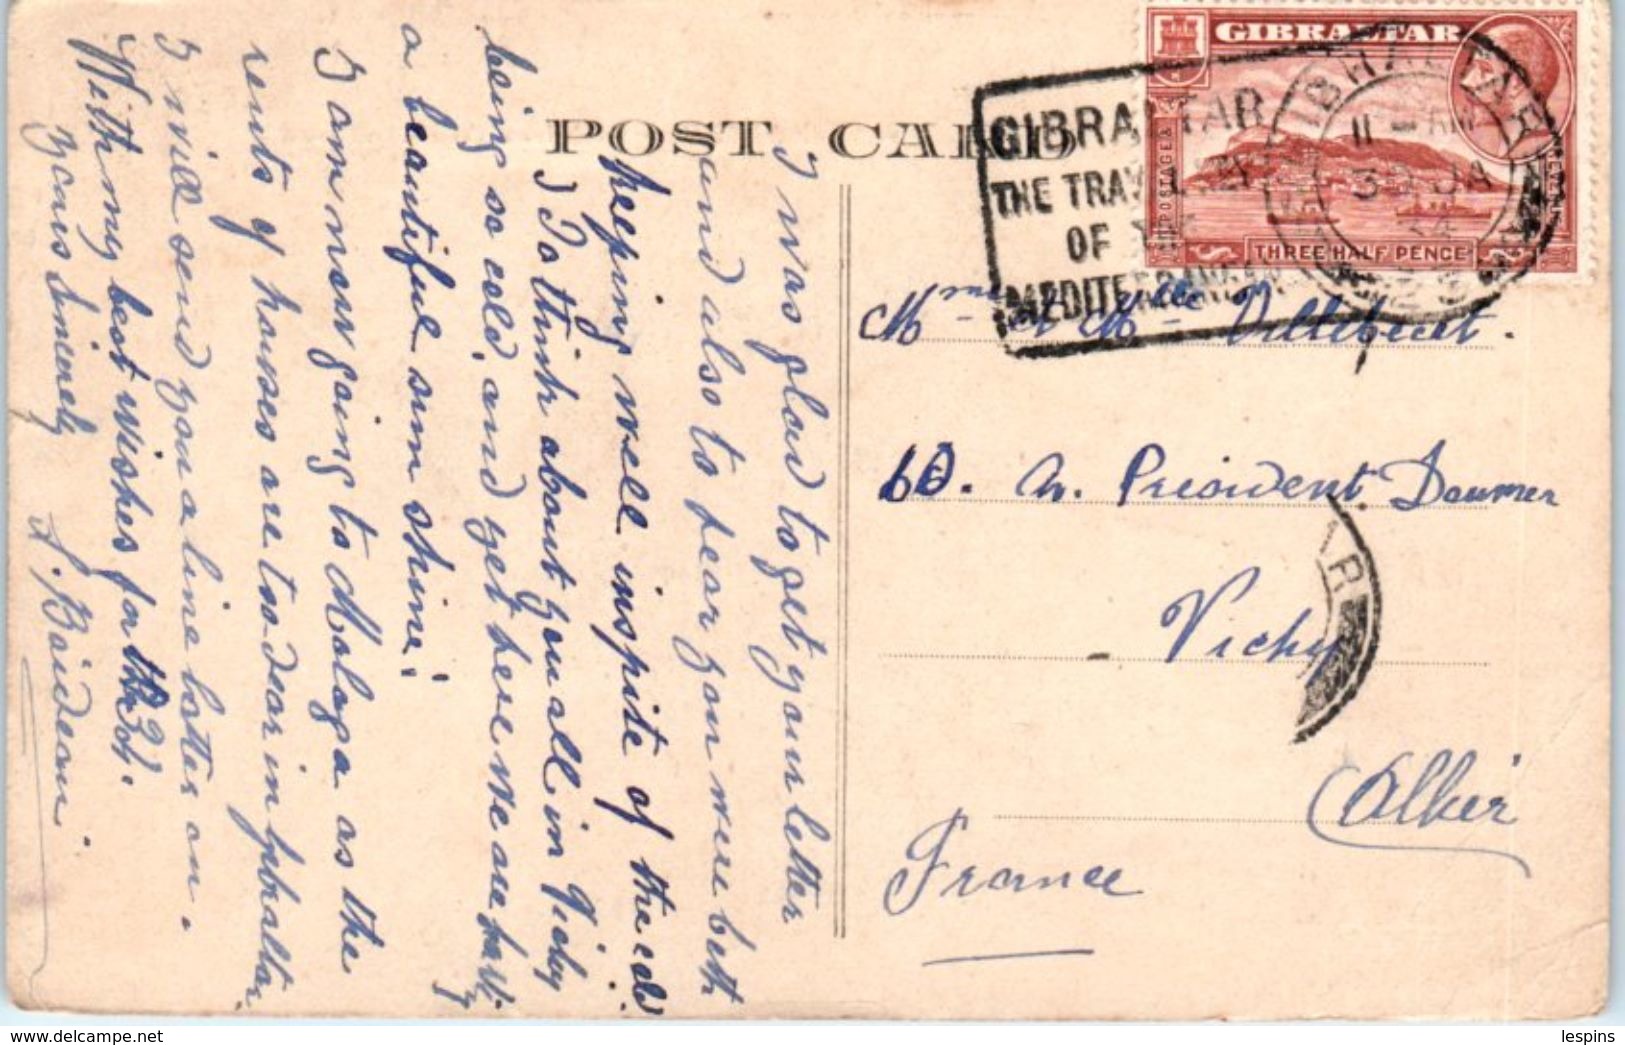 POST CARD
GIBRALTAR
THREE HALF PENCE
POSTAGE &
GIBRALTAR
THE TRAVEL KEY
OF THE
MEDITERRANEAN
GIBRALTAR
11 - AM
30 JA
34
I was glad to get your letter
and also to hear you were both
keeping well inspite of the cold
To think about you all in Vichy
being so cold, and yet here we are havi-
a beautiful sun shine!
I am now going to Malaga as the
rents of houses are too dear in Gibraltar,
I will send you a line later on.
With my best wishes for the 34.
Yours Sincerely
Mme & Mlle Villebeut.
60. N. President Doumer
Vichy
Allier
France
AR
lespins